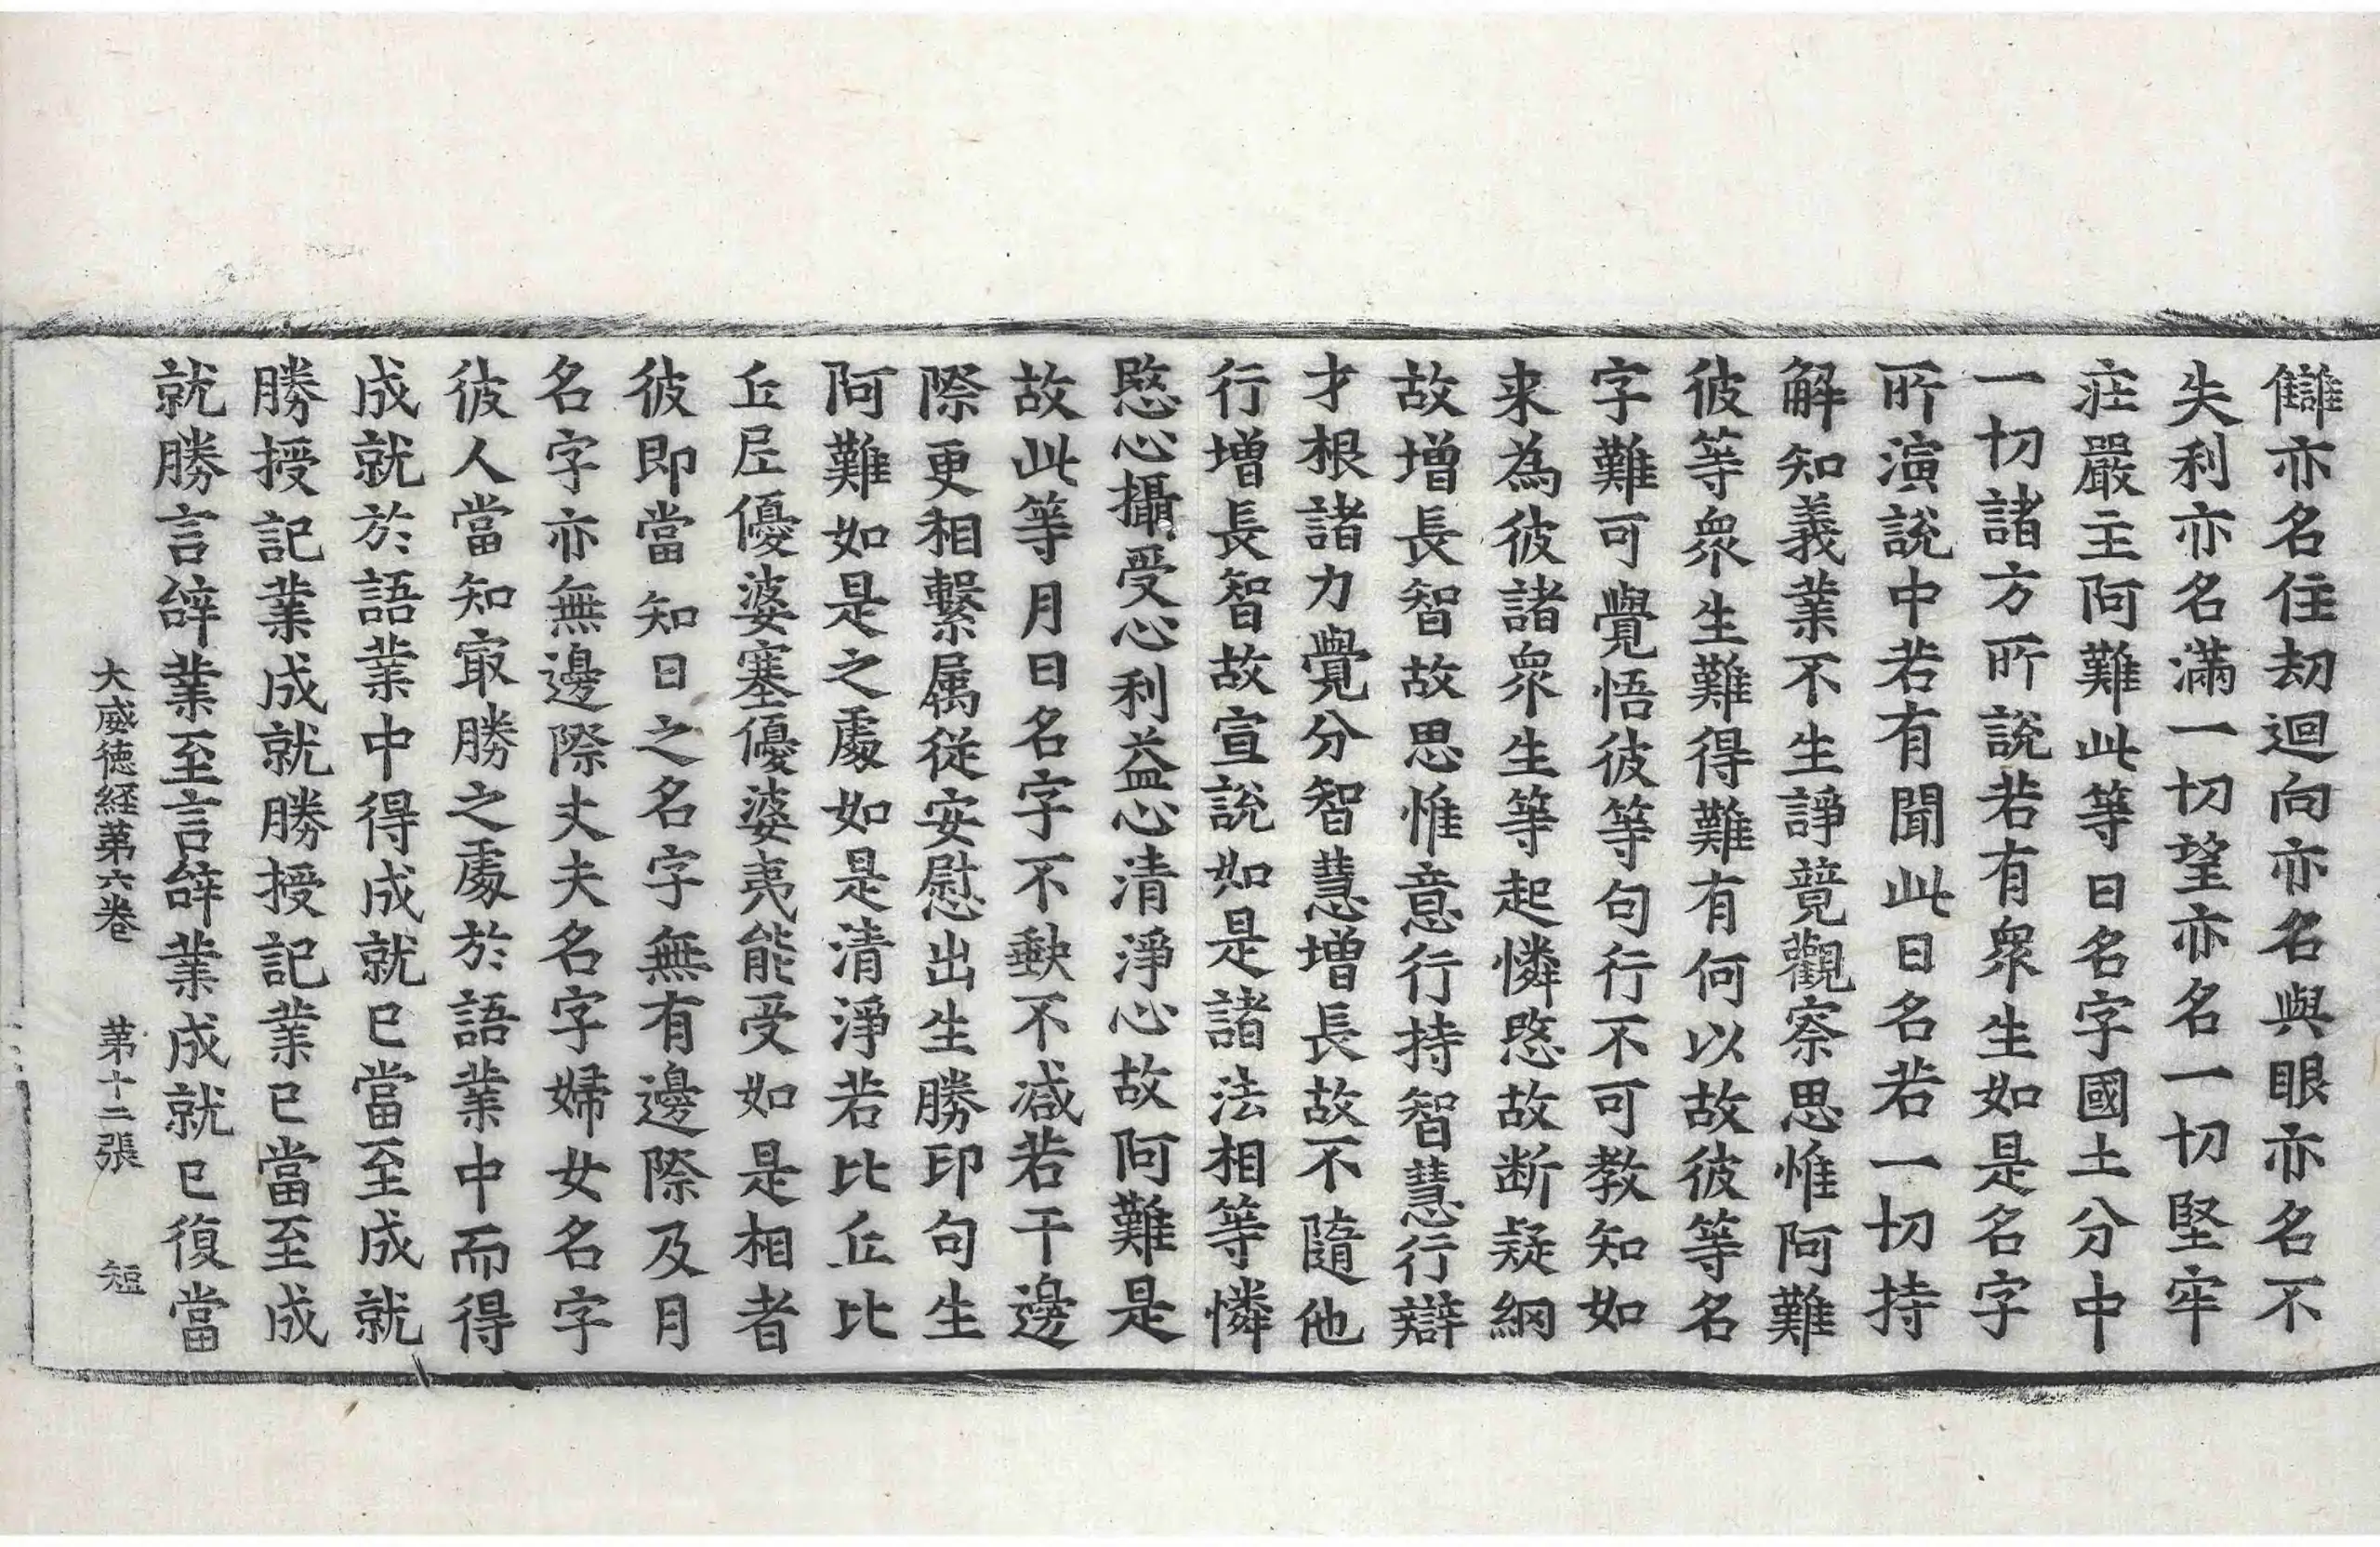 讎亦名住劫迴向亦名與眼亦名不
失利亦名滿一切望亦名一切堅牢
莊嚴主阿難此等日名字國土分中
一切諸方所說若有衆生如是名字
所演說中若有聞此日名若一切持
解知義業不生諍競觀察思惟阿難
彼等衆生難得難有何以故彼等名
字難可覺悟彼等句行不可教知如
来為彼諸衆生等起憐愍故断疑網
故增長智故思惟意行持智慧行辯
才根諸力覺分智慧增長故不隨他
行增長智故宣說如是諸法相等憐
愍心攝受心利益心清淨心故阿難是
故此等月日名字不缺不減若干邊
際更相繫属從安慰出生勝印句生
阿難如是之處如是清淨若比丘比
丘尼優婆塞優婆夷能受如是相者
彼即當知日之名字無有邊際及月
名字亦無邊際丈夫名字婦女名字
彼人當知㝡勝之處於語業中而得
成就於語業中得成就已當至成就
勝授記業成就勝授記業已當至成
就勝言辭業至言辭業成就已復當
大威徳経第六卷 第十二張 短